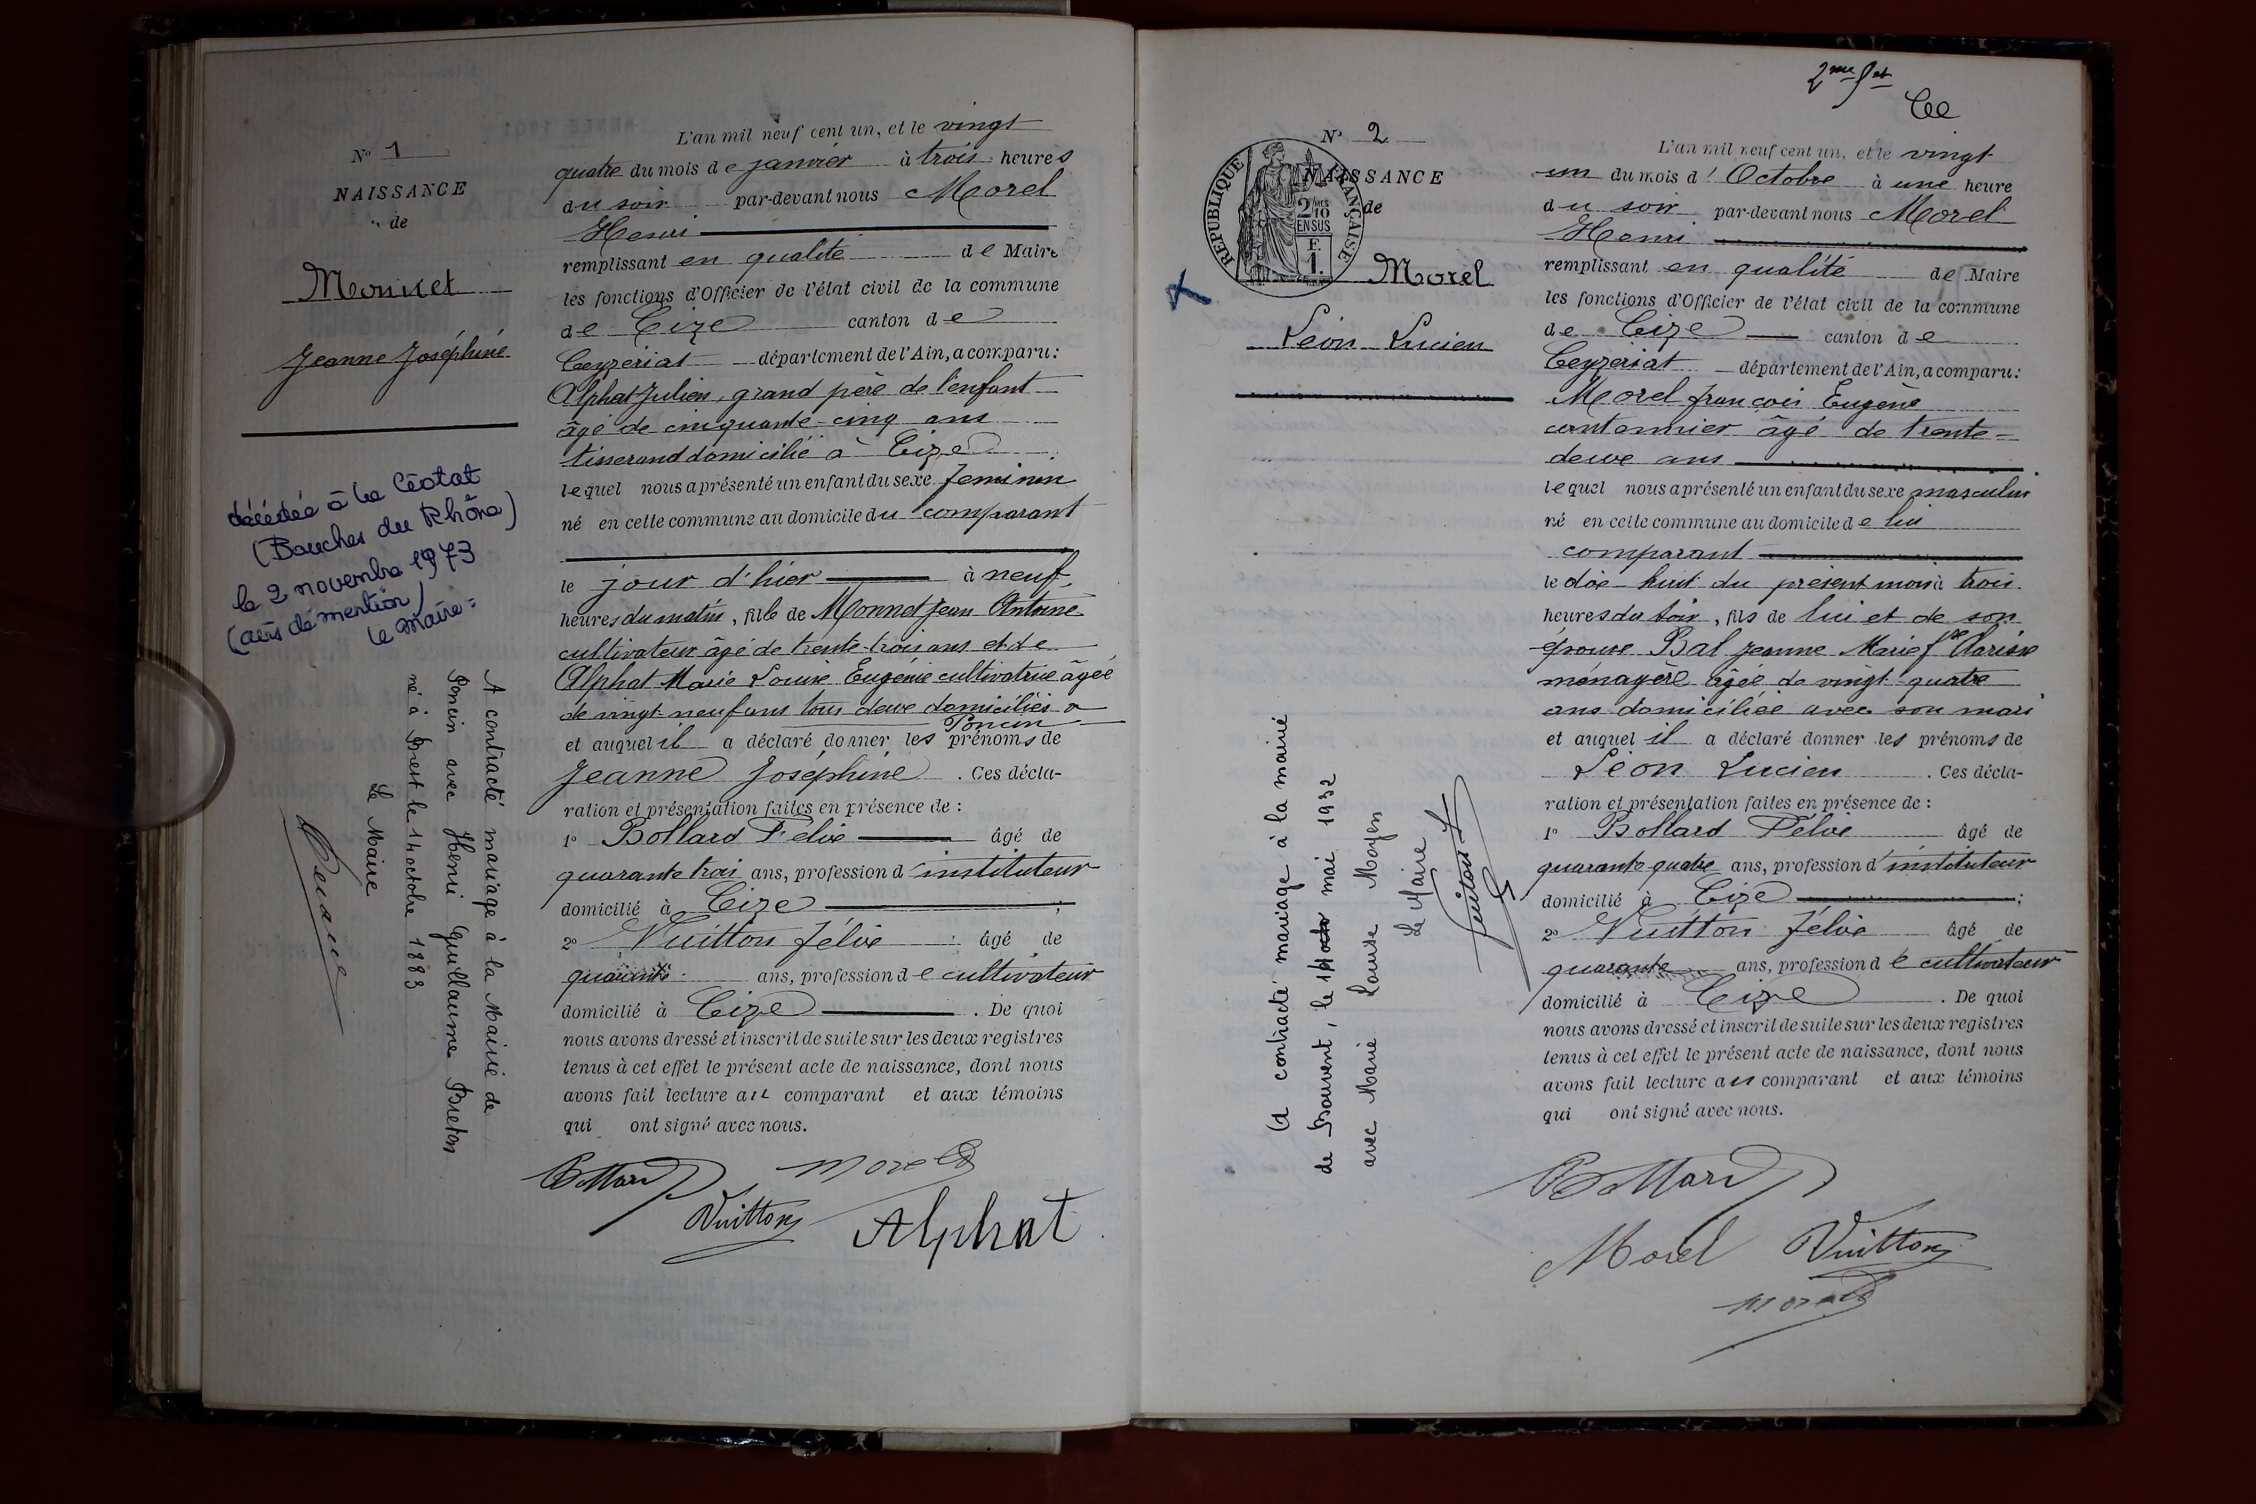 N° 1
NAISSANCE
de
Monnet
Jeanne Joséphine
décédée à La Ciotat
(Bouches du Rhône)
le 2 novembre 1973
(avis de mention)
le Maire =
A contracté mariage à la Mairie de
Poncin avec Henri Guillaume Breton
né à Brest le 14 octobre 1883
Le Maire
L'an mil neuf cent un, et le vingt
quatre du mois de janvier à trois heures
du soir par-devant nous Morel
Henri
remplissant en qualité de Maire
les fonctions d'Officier de l'état civil de la commune
de Cize canton de
Ceyzeriat département de l'Ain, a comparu :
Alphat Julien, grand père de l'enfant
âgé de cinquante-cinq ans
tisserand domicilié à Cize
lequel nous a présenté un enfant du sexe feminin
né en cette commune au domicile du comparant
le jour d'hier à neuf
heures du matin, fille de Monnet Jean Antoine
cultivateur âgé de trente-trois ans et de
Alphat Marie Louise Eugénie cultivatrice âgée
de vingt-neuf ans tous deux domiciliés à
Poncin
et auquel il a déclaré donner les prénoms de
Jeanne Joséphine. Ces décla-
ration et présentation faites en présence de :
1° Bollard Félix âgé de
quarante trois ans, profession d'instituteur
domicilié à Cize ;
2° Vuitton Félix âgé de
quarante ans, profession de cultivateur
domicilié à Cize. De quoi
nous avons dressé et inscrit de suite sur les deux registres
tenus à cet effet le présent acte de naissance, dont nous
avons fait lecture au comparant et aux témoins
qui ont signé avec nous.
Bollard Morel
Vuitton Alphat
2me
N° 2
NAISSANCE
de
REPUBLIQUE FRANÇAISE
2/10
EN SUS
F.
1.
Morel
Léon Lucien
A contracté mariage à la mairie
de Bouvent, le 14 octo mai 1932
avec Marie Louise Moyen
Le Maire
L'an mil neuf cent un, et le vingt
un du mois d'Octobre à une heure
du soir par-devant nous Morel
Henri
remplissant en qualité de Maire
les fonctions d'Officier de l'état civil de la commune
de Cize canton de
Ceyzeriat département de l'Ain, a comparu :
Morel françois Eugène
cantonnier âgé de trente-
deux ans
lequel nous a présenté un enfant du sexe masculin
né en cette commune au domicile de lui
comparant
le dix-huit du présent mois à trois
heures du soir, fils de lui et de son
épouse Bal Jeanne Marie fse Clarisse
ménagère âgée de vingt quatre
ans domiciliée avec son mari
et auquel il a déclaré donner les prénoms de
Léon Lucien. Ces décla-
ration et présentation faites en présence de :
1° Bollard Félix âgé de
quarante quatre ans, profession d'instituteur
domicilié à Cize ;
2° Vuitton Félix âgé de
quarante ans, profession de cultivateur
domicilié à Cize. De quoi
nous avons dressé et inscrit de suite sur les deux registres
tenus à cet effet le présent acte de naissance, dont nous
avons fait lecture au comparant et aux témoins
qui ont signé avec nous.
Bollard
Morel Vuitton
Morel